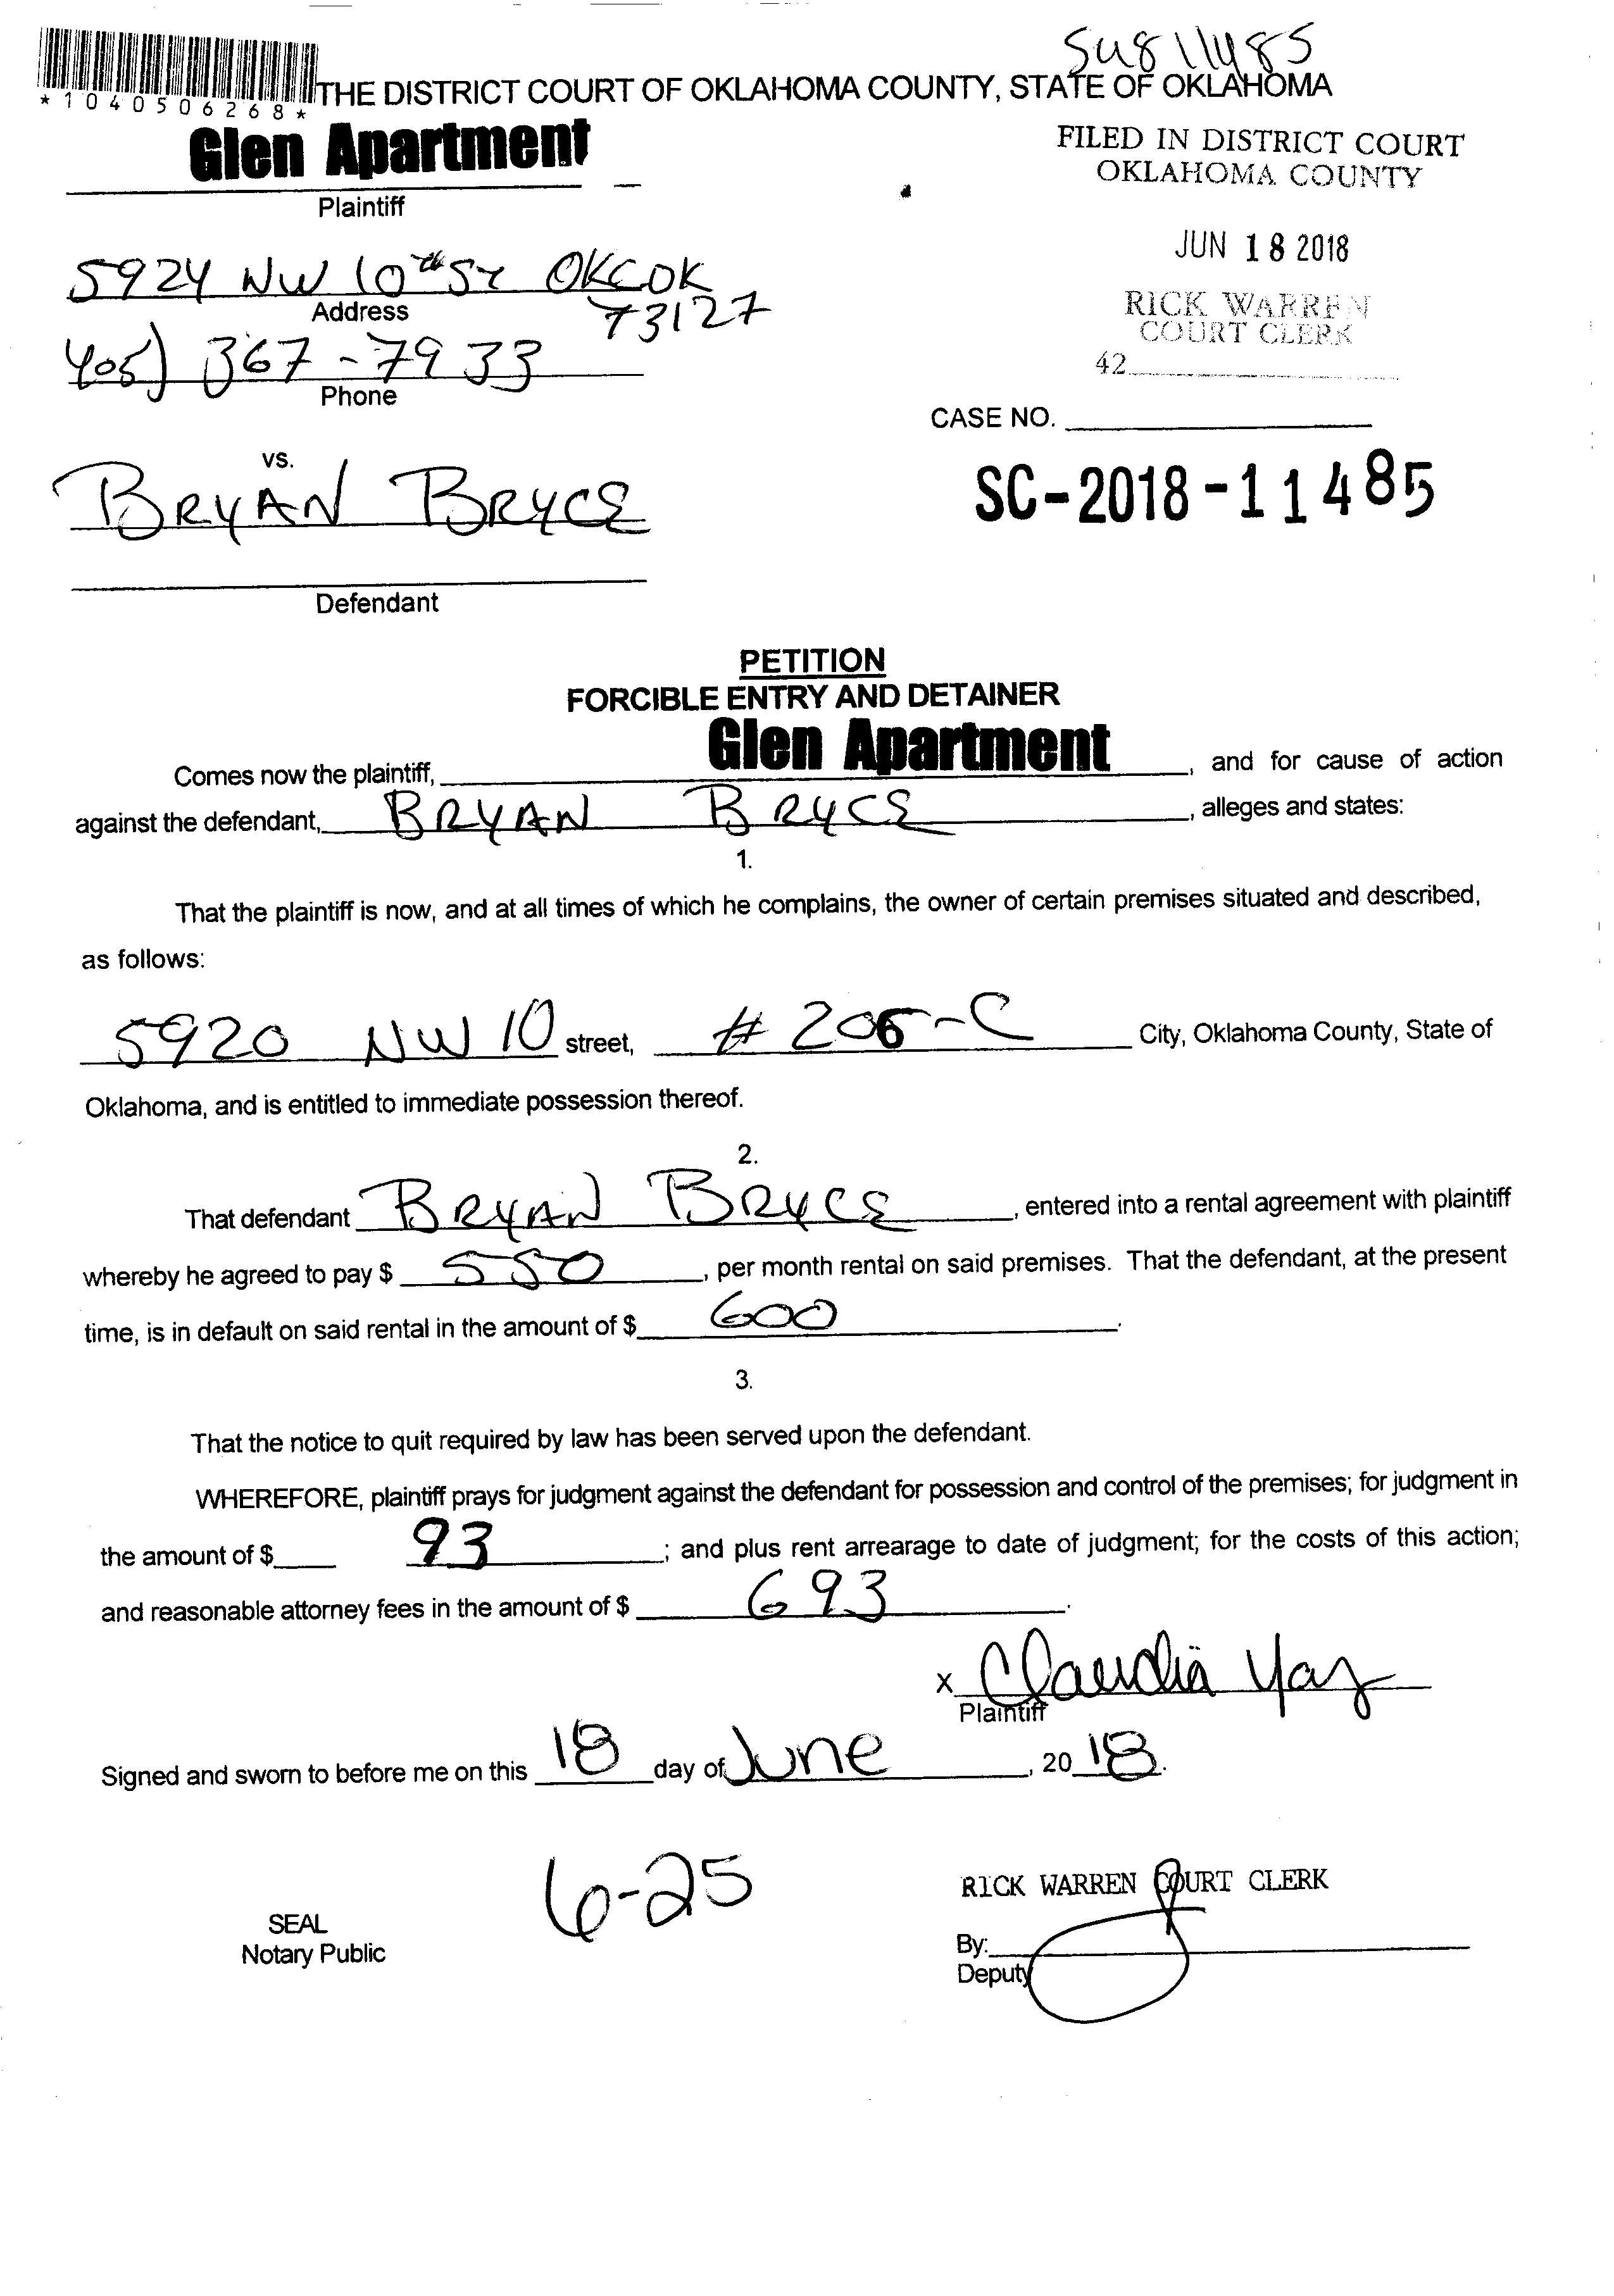 SC1811485
*1040506268*
THE DISTRICT COURT OF OKLAHOMA COUNTY, STATE OF OKLAHOMA
Glen Apartment
Plaintiff
FILED IN DISTRICT COURT
OKLAHOMA COUNTY
JUN 18 2018
RICK WARREN
COURT CLERK
42
5924 NW 10th St OKC OK
73127
Address
405) 367-7933
Phone
CASE NO.
SC-2018-11485
vs.
BRYAN BRYCE
Defendant
PETITION
FORCIBLE ENTRY AND DETAINER
Comes now the plaintiff, Glen Apartment, and for cause of action
against the defendant, BRYAN BRYCE, alleges and states:
1.
That the plaintiff is now, and at all times of which he complains, the owner of certain premises situated and described,
as follows:
5920 NW 10 street, # 206-C City, Oklahoma County, State of
Oklahoma, and is entitled to immediate possession thereof.
2.
That defendant BRYAN BRYCE, entered into a rental agreement with plaintiff
whereby he agreed to pay $ 550, per month rental on said premises. That the defendant, at the present
time, is in default on said rental in the amount of $ 600.
3.
That the notice to quit required by law has been served upon the defendant.
WHEREFORE, plaintiff prays for judgment against the defendant for possession and control of the premises; for judgment in
the amount of $ 93; and plus rent arrearage to date of judgment; for the costs of this action;
and reasonable attorney fees in the amount of $ 693.
x Claudia Yaz
Plaintiff
Signed and sworn to before me on this 18 day of June, 20 18.
6-25
RICK WARREN COURT CLERK
SEAL
Notary Public
By:
Deputy